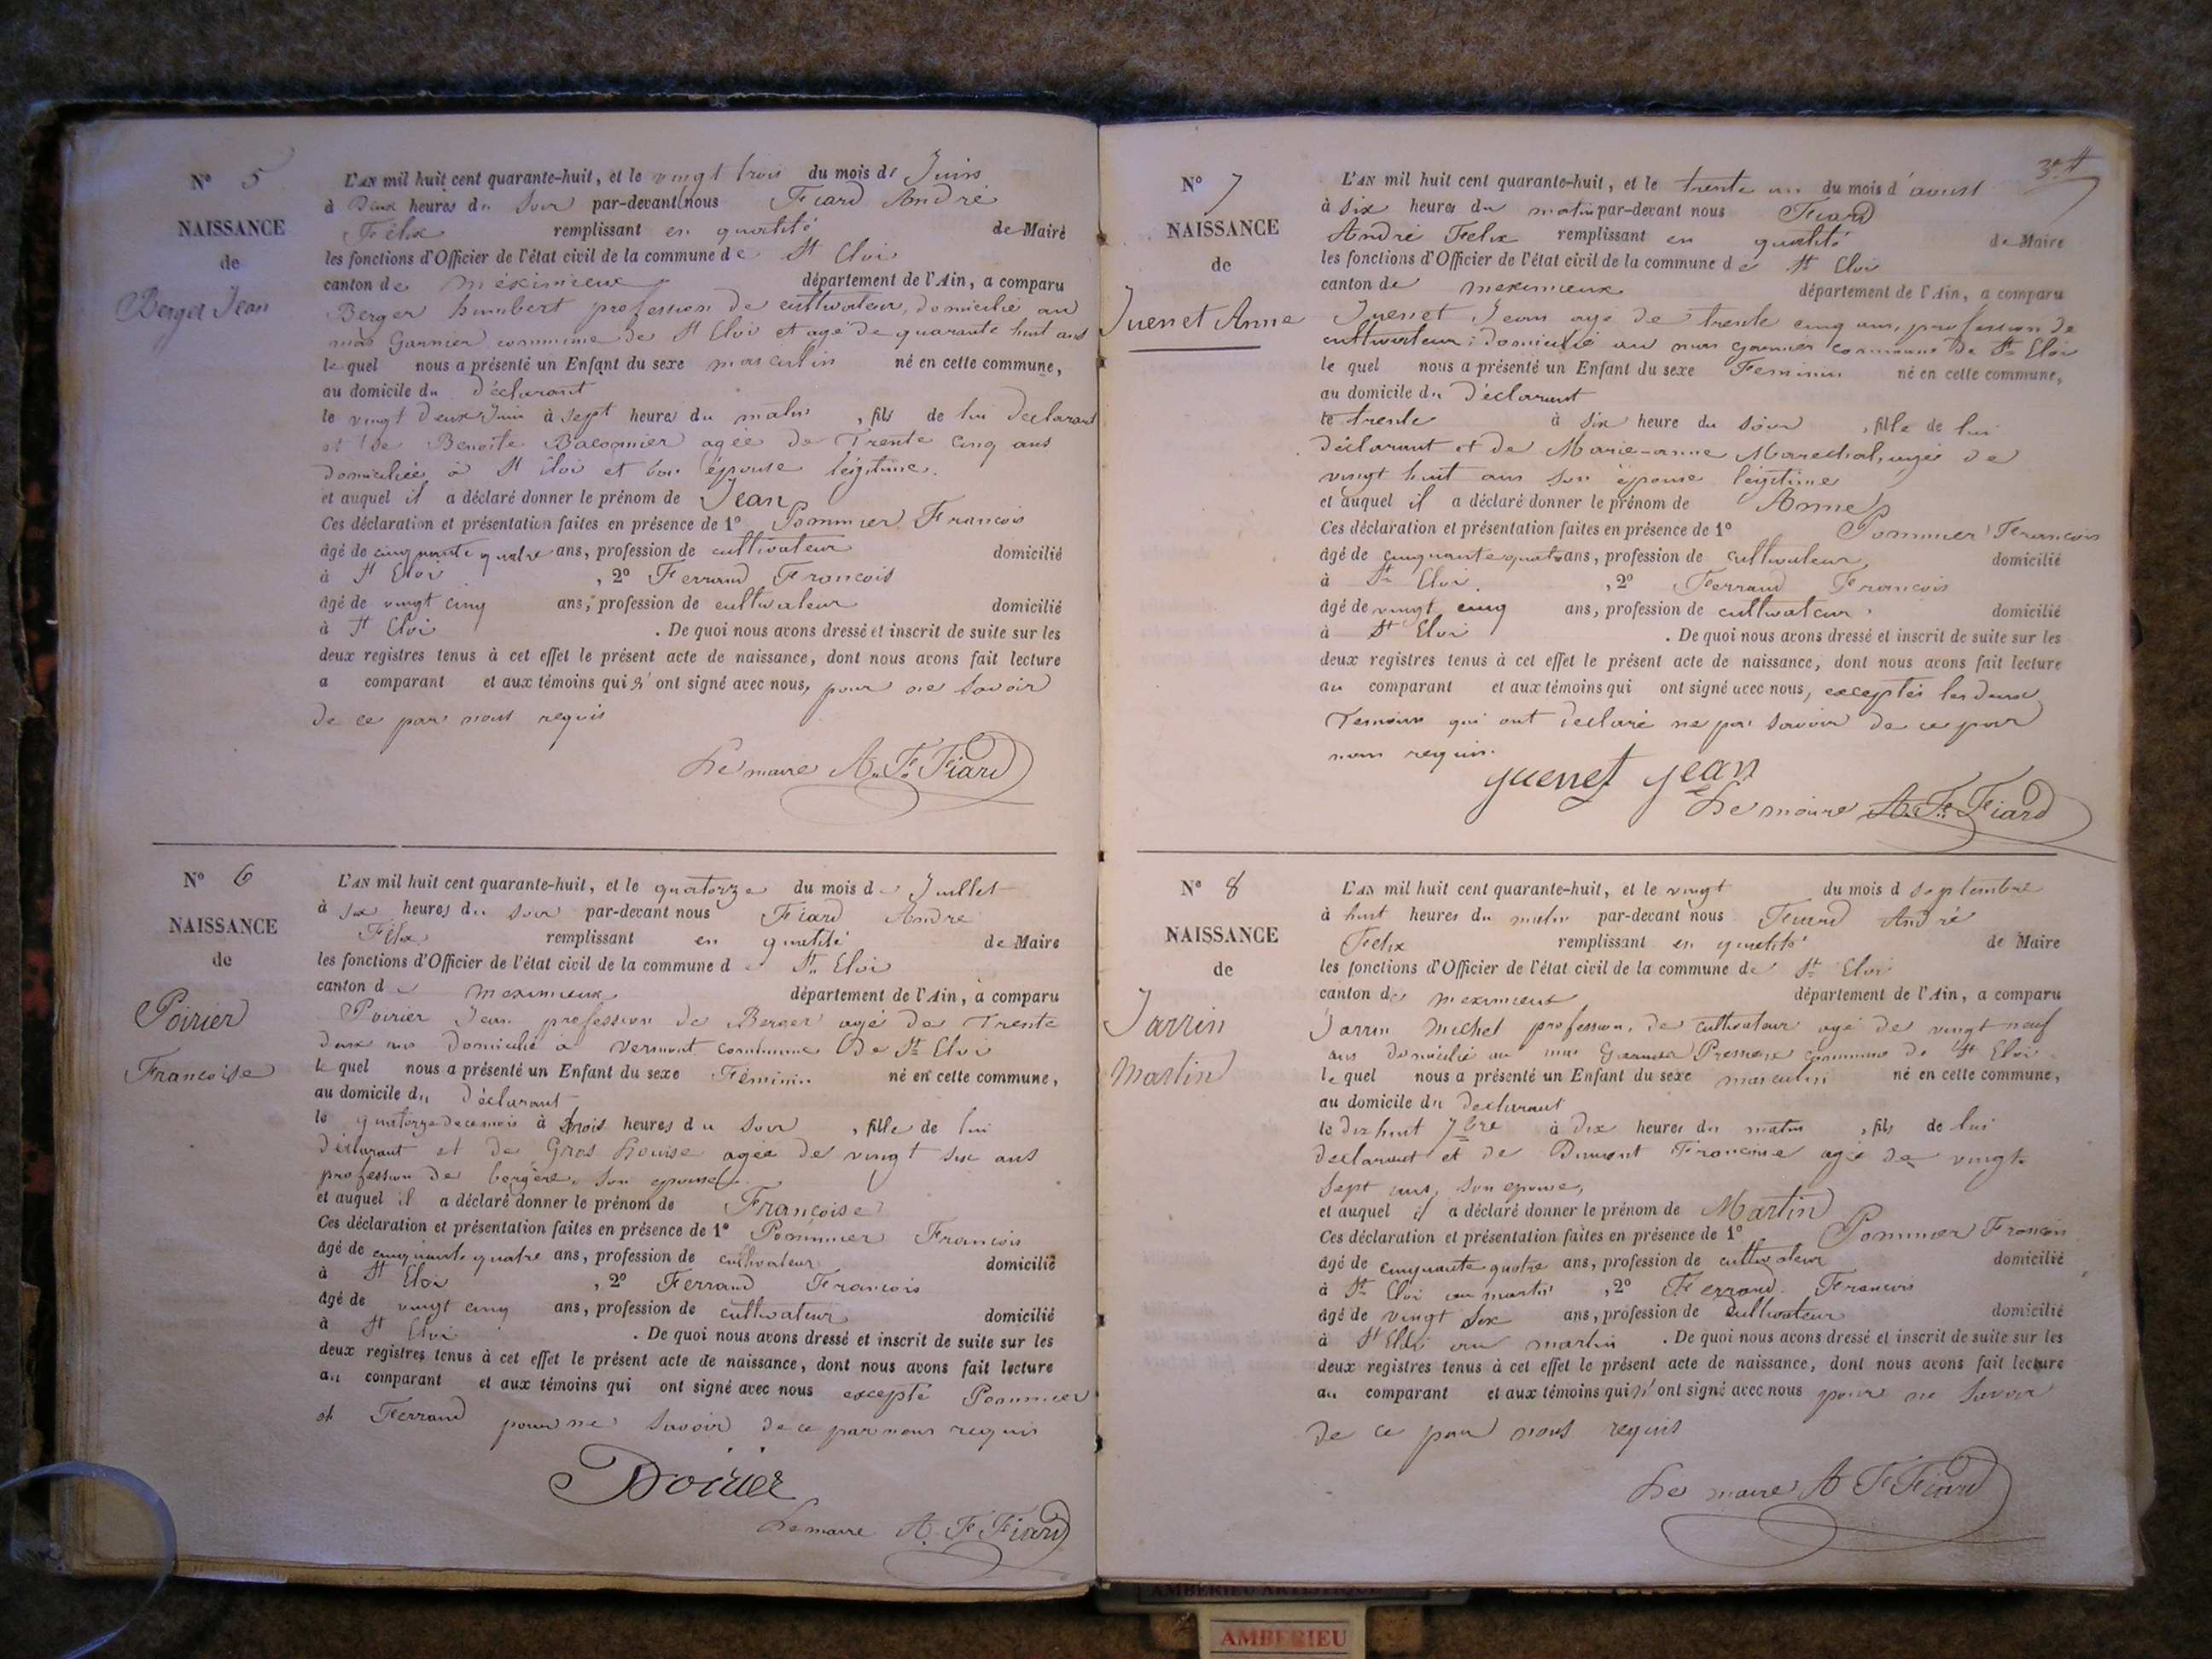 N° 5
NAISSANCE
de
Berger Jean
L'AN mil huit cent quarante-huit, et le vingt trois du mois de Juins
à Deux heures du Soir par-devant nous Fiard André
Félix remplissant en qualité de Maire
les fonctions d'Officier de l'état civil de la commune de St Eloi
canton de méximieux département de l'Ain, a comparu
Berger humbert profession de cultivateur, domicilié au
mas Garnier commune de St Eloi et agé de quarante huit ans
lequel nous a présenté un Enfant du sexe masculin né en cette commune,
au domicile du Déclarant
le vingt Deux Juin à Sept heures du matin, fils de lui Déclarant
et de Benoite agée de Trente Cinq ans
domiciliée à St Eloi et Son épouse légitime.
et auquel il a déclaré donner le prénom de Jean
Ces déclaration et présentation faites en présence de 1° Pommier Francois
âgé de cinquante quatre ans, profession de cultivateur domicilié
à St Eloi, 2° Ferrand Francois
âgé de vingt cinq ans, profession de cultivateur domicilié
à St Eloi. De quoi nous avons dressé et inscrit de suite sur les
deux registres tenus à cet effet le présent acte de naissance, dont nous avons fait lecture
a comparant et aux témoins qui n'ont signé avec nous, pour ne Savoir
de ce par nous requis
Le maire A. F. Fiard
N° 6
NAISSANCE
de
Poirier
Francoise
L'AN mil huit cent quarante-huit, et le quatorze du mois de Juillet
à six heures du Soir par-devant nous Fiard André
Félix remplissant en qualité de Maire
les fonctions d'Officier de l'état civil de la commune de St Eloi
canton de meximieux département de l'Ain, a comparu
Poirier Jean profession de Berger agé de Trente
deux ans Domicilié à commune de St Eloi
lequel nous a présenté un Enfant du sexe Féminin né en cette commune,
au domicile du Déclarant
le quatorze de ce mois à trois heures du Soir, fille de lui
déclarant et de Gros Louise agée de vingt six ans
profession de bergère, Son epouse
et auquel il a déclaré donner le prénom de Françoise
Ces déclaration et présentation faites en présence de 1° Pommier Francois
âgé de cinquante quatre ans, profession de cultivateur domicilié
à St Eloi, 2° Ferrand Francois
âgé de vingt cinq ans, profession de cultivateur domicilié
à St Eloi. De quoi nous avons dressé et inscrit de suite sur les
deux registres tenus à cet effet le présent acte de naissance, dont nous avons fait lecture
au comparant et aux témoins qui ont signé avec nous excepté Pommier
et Ferrand pour ne Savoir de ce par nous requis
Poirier
Le maire A. F. Fiard
3e
N° 7
NAISSANCE
de
Juenet Anne
L'AN mil huit cent quarante-huit, et le trente un du mois d'aoust
à six heures du matin par-devant nous Fiard
André Felix remplissant en qualité de Maire
les fonctions d'Officier de l'état civil de la commune de St Eloi
canton de meximieux département de l'Ain, a comparu
Juenet Jean agé de trente cinq ans, profession de
cultivateur, domicilié au mas garnier commune de St Eloi
lequel nous a présenté un Enfant du sexe Feminin né en cette commune,
au domicile du Déclarant
le trente à six heure du Soir, fille de lui
déclarant et de Marie-anne Marechal, agée de
vingt huit ans Son épouse légitime
et auquel il a déclaré donner le prénom de Anne
Ces déclaration et présentation faites en présence de 1° Pommier Francois
âgé de cinquante quatre ans, profession de cultivateur domicilié
à St Eloi, 2° Ferrand Francois
âgé de vingt cinq ans, profession de cultivateur domicilié
à St Eloi. De quoi nous avons dressé et inscrit de suite sur les
deux registres tenus à cet effet le présent acte de naissance, dont nous avons fait lecture
au comparant et aux témoins qui ont signé avec nous, exceptés les deux
Temoins qui ont déclaré ne pas Savoir de ce par
nous requis.
juenet jean
Le maire A. F. Fiard
N° 8
NAISSANCE
de
Jarrin
Martin
L'AN mil huit cent quarante-huit, et le vingt du mois d septembre
à huit heures du matin par-devant nous Fiard André
Felix remplissant en qualité de Maire
les fonctions d'Officier de l'état civil de la commune de St Eloi
canton de meximieux département de l'Ain, a comparu
Jarrin Michel profession de cultivateur agé de vingt neuf
ans domicilié au mas commune de St Eloi
lequel nous a présenté un Enfant du sexe masculin né en cette commune,
au domicile du Déclarant
le dix huit 7bre à dix heures du matin, fils de lui
declarant et de Dumont Francoise agée de vingt
Sept ans, Son epouse,
et auquel il a déclaré donner le prénom de Martin
Ces déclaration et présentation faites en présence de 1° Pommier Francois
âgé de cinquante quatre ans, profession de cultivateur domicilié
à St Eloi au martin, 2° Ferrand Francois
âgé de vingt Six ans, profession de cultivateur domicilié
à St Eloi au martin. De quoi nous avons dressé et inscrit de suite sur les
deux registres tenus à cet effet le présent acte de naissance, dont nous avons fait lecture
au comparant et aux témoins qui n'ont signé avec nous pour ne Savoir
de ce par nous requis
Le maire A F Fiard
AMBERIEU ARTISTIQUE
AMBERIEU